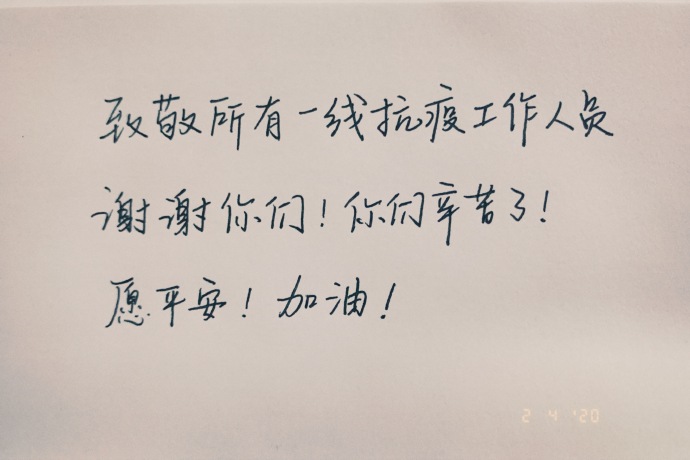 致敬所有一线抗疫工作人员
谢谢你们！你们辛苦了！
愿平安！加油！
2 4 '20